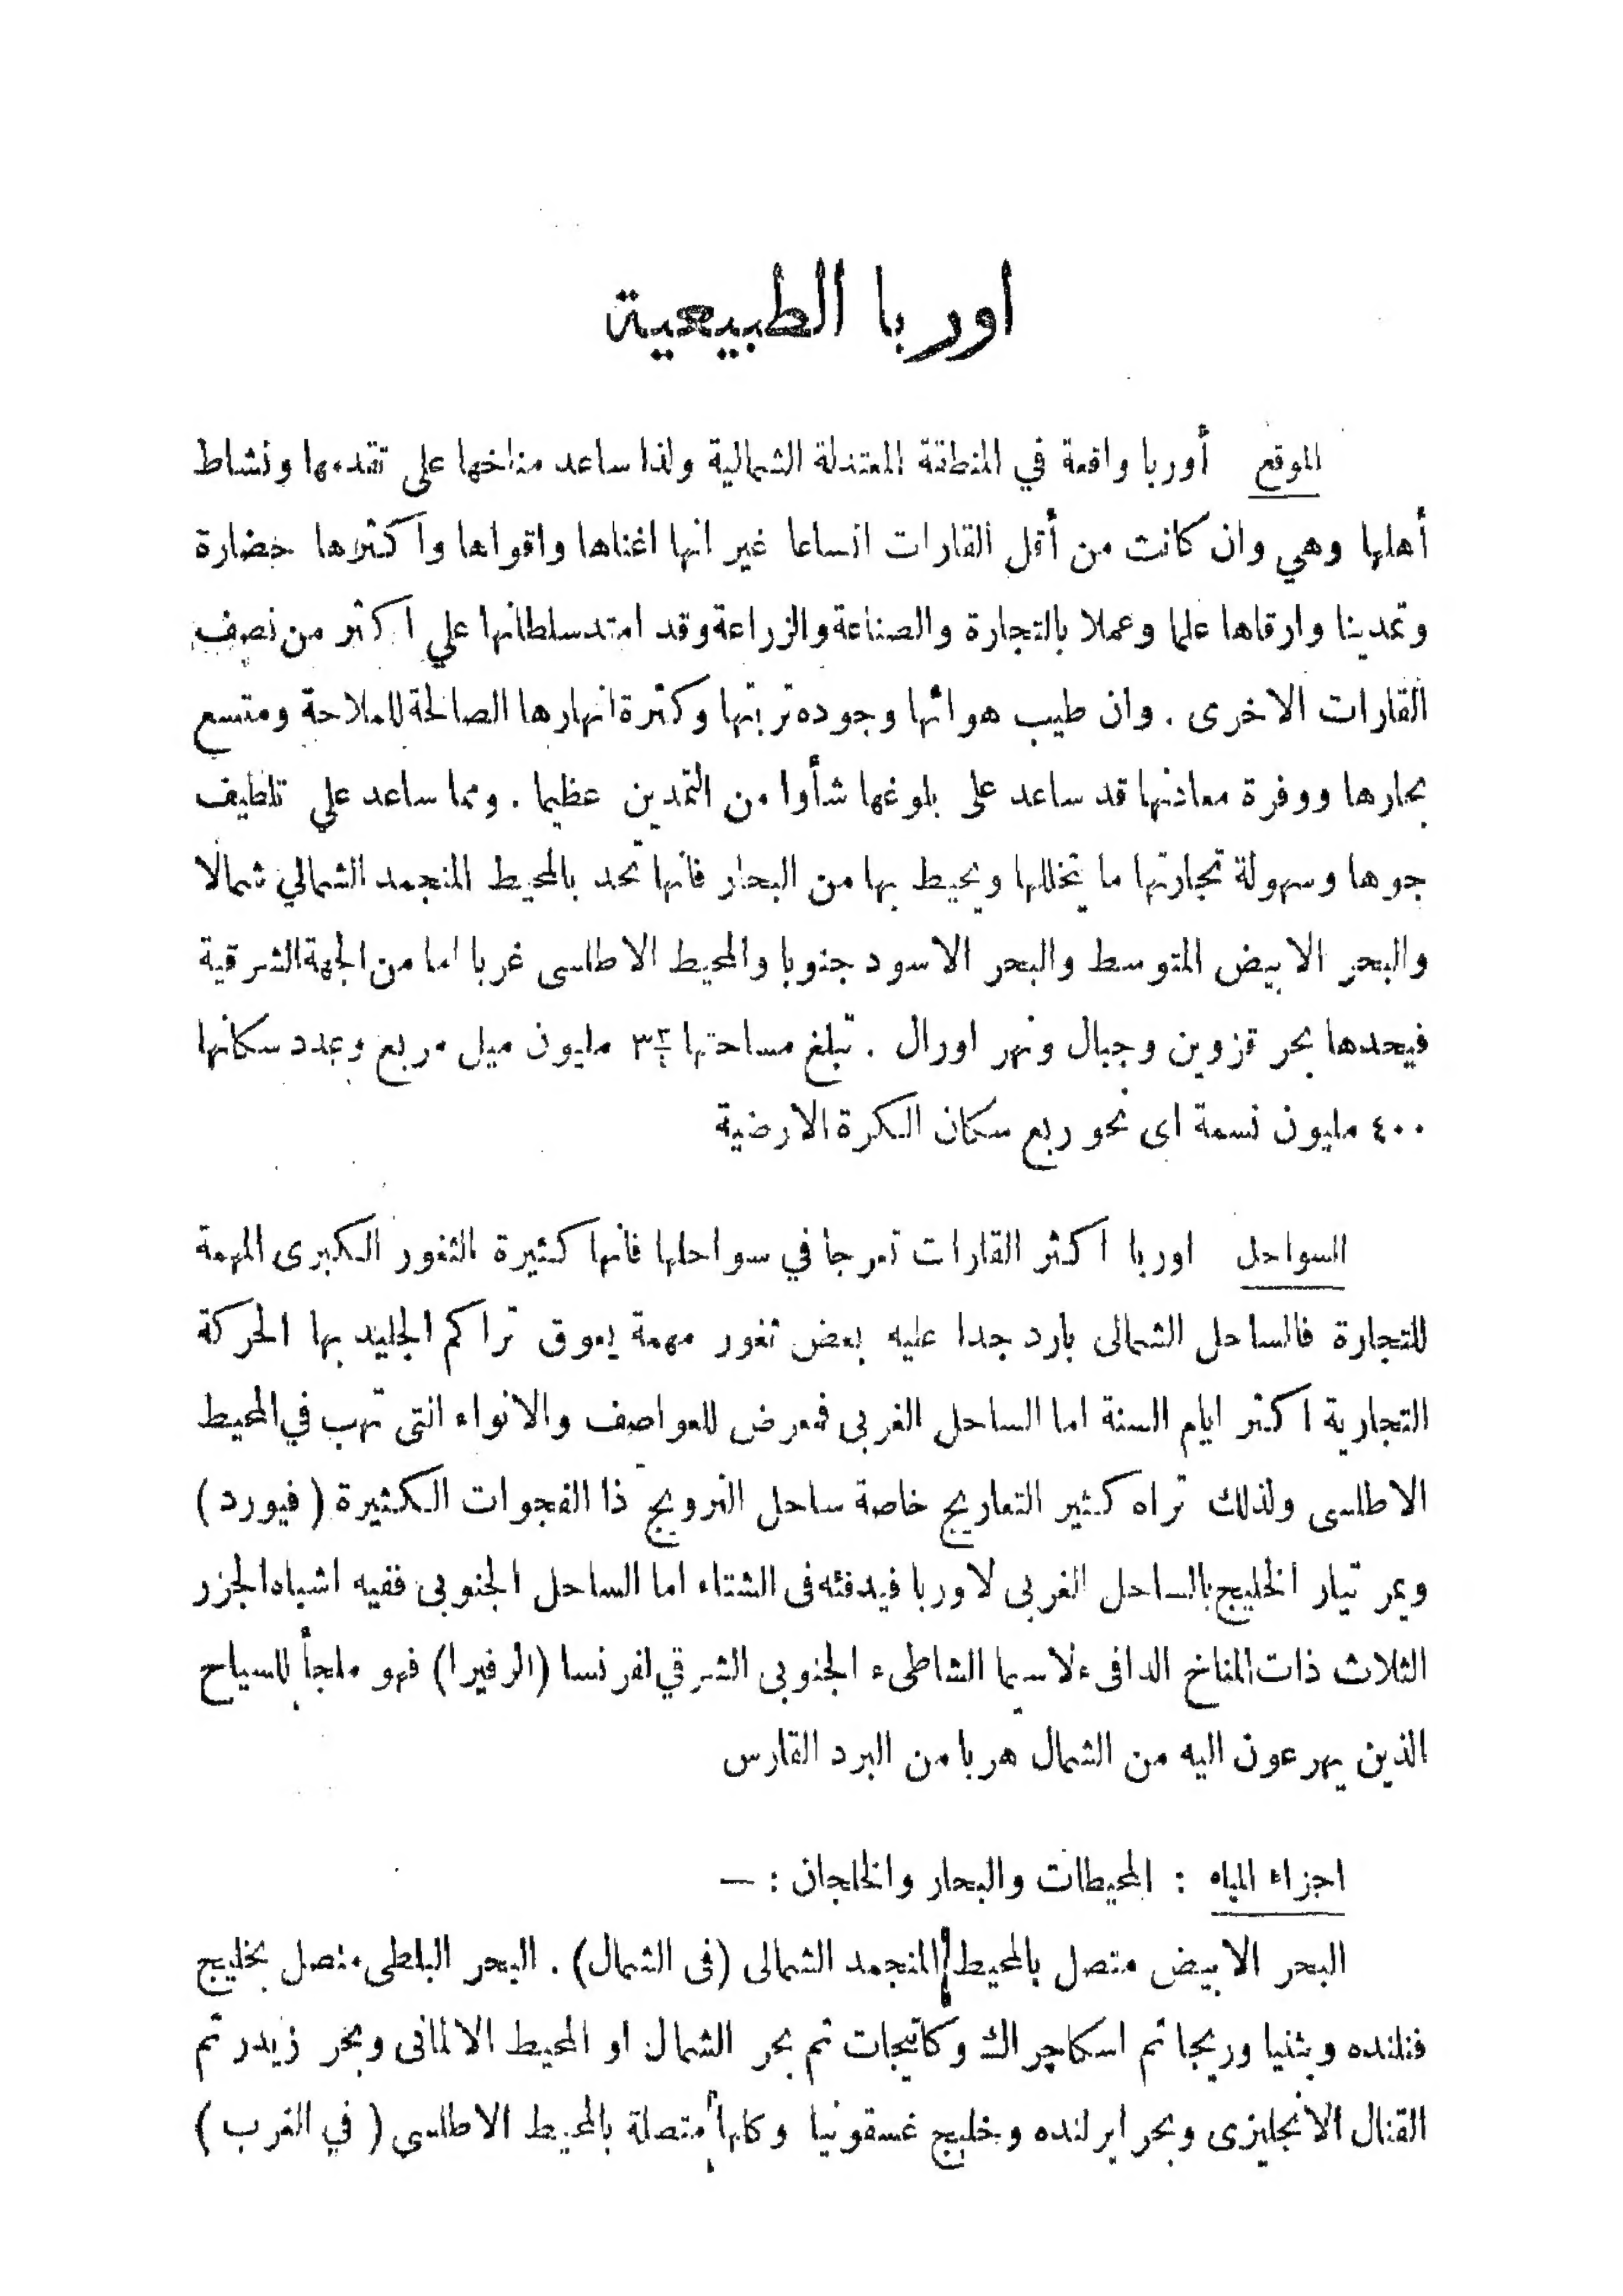 اوربا الطبيعية
الموقع أوربا واقعة في المنطقة المعتدلة الشمالية ولذا ساعد مناخها على تقدمها ونشاط
أهلها وهي وان كانت من أقل القارات اتساعا غير انها اغناها واقواها واكثرها حضارة
وتمدينا وارقاها علما وعملا بالتجارة والصناعة والزراعة وقد امتد سلطانها علي اكثر من نصف
القارات الاخرى . وان طيب هوائها وجوده تربتها وكثرة انهارها الصالحة للملاحة ومتسع
بحارها ووفرة معادنها قد ساعد على بلوغها شأوا من التمدين عظيما . ومما ساعد علي تلطيف
جوها وسهولة تجارتها ما يتخللها ويحيط بها من البحار فانها تحد بالمحيط المنجمد الشمالي شمالا
والبحر الابيض المتوسط والبحر الاسود جنوبا والمحيط الاطلسى غربا اما من الجهة الشرقية
فيحدها بحر قزوين وجبال ونهر اورال . تبلغ مساحتها ٣¾ مليون ميل مربع وعدد سكانها
٤٠٠ مليون نسمة اى نحو ربع سكان الكرة الارضية
السواحل اوربا اكثر القارات تعرجا في سواحلها فانها كثيرة الثغور الكبرى المهمة
للتجارة فالساحل الشمالى بارد جدا عليه بعض ثغور مهمة يعوق تراكم الجليد بها الحركة
التجارية اكثر ايام السنة اما الساحل الغربى فمعرض للعواصف والانواء التى تهب في المحيط
الاطلسى ولذلك تراه كثير التعاريج خاصة ساحل النرويج ذا الفجوات الكثيرة ( فيورد )
ويمر تيار الخليج بالساحل الغربى لاوربا فيدفئه فى الشتاء اما الساحل الجنوبى ففيه اشباه الجزر
الثلاث ذات المناخ الدافىء لاسيما الشاطىء الجنوبى الشرقي لفرنسا (الرفيرا) فهو ملجأ للسياح
الذين يهرعون اليه من الشمال هربا من البرد القارس
اجزاء المياه : المحيطات والبحار والخلجان : —
البحر الابيض متصل بالمحيط المنجمد الشمالى (فى الشمال) . البحر البلطى متصل بخليج
فنلنده وبثنيا وريجا ثم اسكاچراك وكاتيجات ثم بحر الشمال او المحيط الالمانى وبحر زيدر ثم
القنال الانجليزى وبحر ايرلنده وخليج غسقونيا وكلها متصلة بالمحيط الاطلسي ( في الغرب )